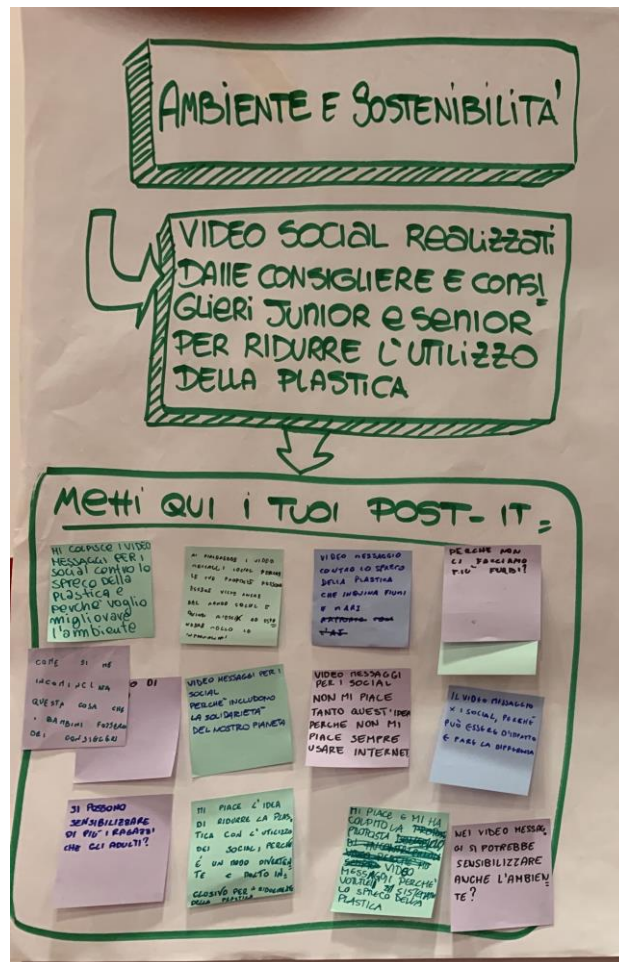 AMBIENTE E SOSTENIBILITA'
VIDEO SOCIAL REALIZZATI
DALLE CONSIGLIERE E CONSI
GLIERI JUNIOR e SENIOR
PER RIDURRE L'UTILIZZO
DELLA PLASTICA
METTI QUI I TUOI POST-IT
MI COLPISCE I VIDEO
MESSAGGI PER I
social contro lo
spreco della
plastica e
perché voglio
migliovare
l'ambiente
I VIDEO
MESSAGGI
PERCHE'
VIDEO MESSAGGIO
CONTRO LO SPRECO
DELLA PLASTICA
CHE INQUINA FIUMI
E MARI
PERCHE NON
CI FACCIAMO
PIU' FURBI?
COME SI
QUESTA COSA CHE
I BAMBINI FOSSERO
DEI CONSIGLIERI
DI
VIDEO MESSAGGI PER I
SOCIAL
PERCHE' INCLUDONO
LA SOLIDARIETA'
DEL NOSTRO PIANETA
VIDEO MESSAGGI
PER I SOCIAL
NON MI PIACE
TANTO QUEST'IDEA
PERCHE NON MI
PIACE SEMPRE
USARE INTERNET
IL VIDEO MESSAGGIO
X I SOCIAL, PERCHE'
PUO' ESSERE D'IMPATTO
E FARE LA DIFFERENZA
SI POSSONO
SENSIBILIZZARE
DI PIU' I RAGAZZI
CHE GLI ADULTI?
MI PIACE L'IDEA
DI RIDURRE LA PLAS
TICA CON L'UTILIZZO
DEI SOCIAL, PERCHE
É UN MODO DIVERTEN
TE E MOLTO IN
CLUSIVO PER
DELLA PLASTICA
MI PIACE E MI HA
COLPITO LA
PROPOSTA
VIDEO
MESSAGGI PERCHE'
LO SPRECO DELLA
PLASTICA
NEI VIDEO MESSAG
GI SI POTREBBE
SENSIBILIZZARE
ANCHE L'AMBIEN
TE?